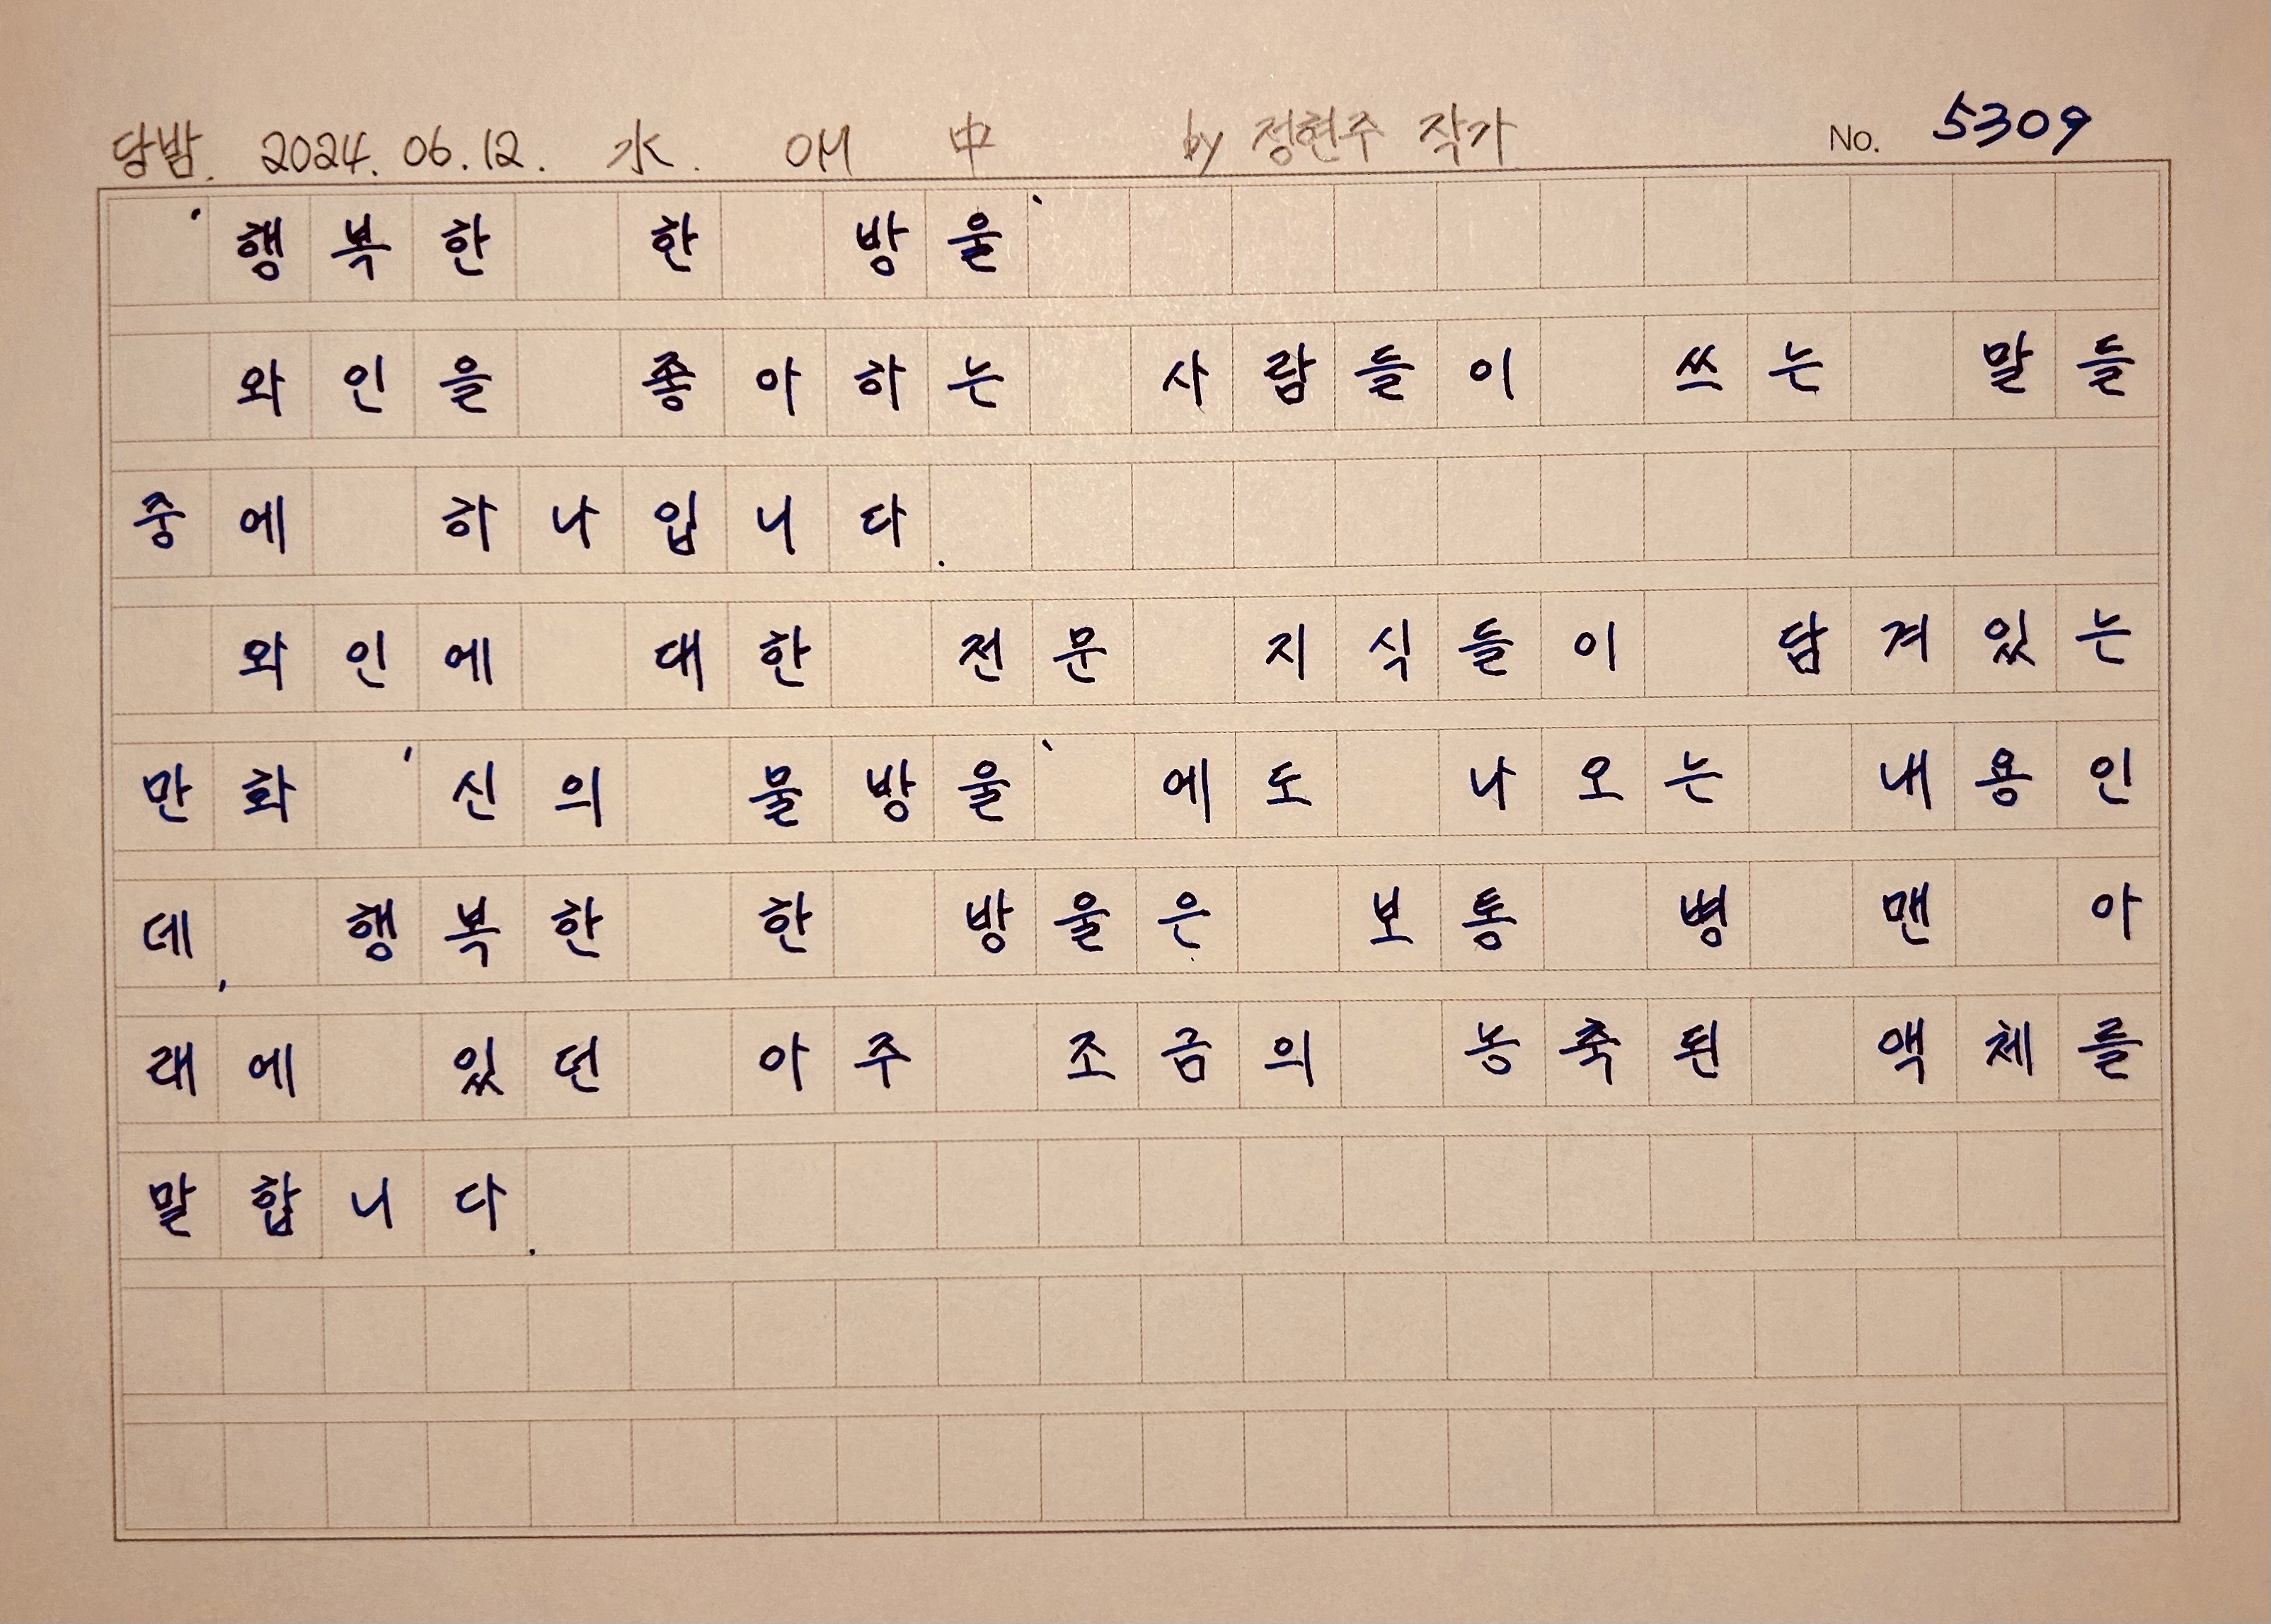 당밤. 2024. 06. 12. 水. OM 中 by 정현주 작가 No. 5309
'행복한 한 방울'
와인을 좋아하는 사람들이 쓰는 말들
중에 하나입니다.
와인에 대한 전문 지식들이 담겨있는
만화 '신의 물방울' 에도 나오는 내용인
데, 행복한 한 방울은 보통 병 맨 아
래에 있던 아주 조금의 농축된 액체를
말합니다.